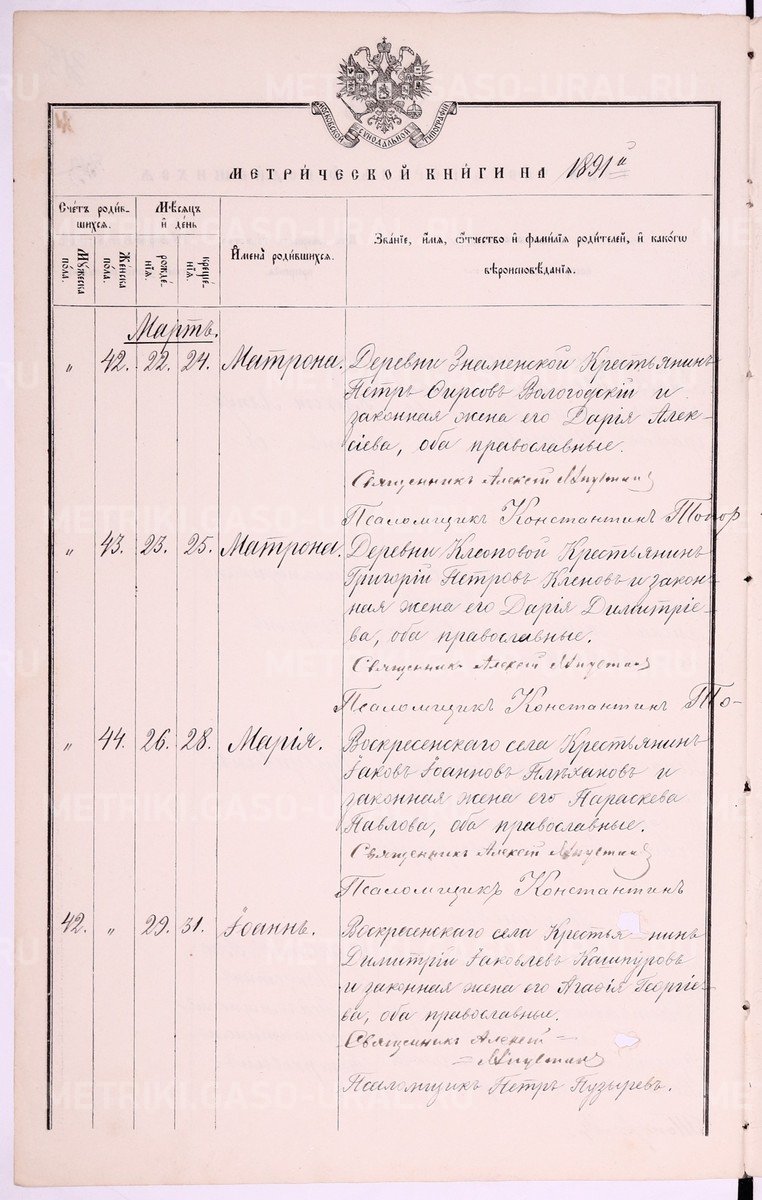 METRIKI.GASO-URAL.RU
МОСКОВСКОЙ СѴНОДАЛЬНОЙ ТИПОГРАФІИ
МЕТРИ́ЧЕСКОЙ КНИ́ГИ НА 1891 й
Сче́тъ роди́вшихся.
Му́жеска по́ла.
Же́нска по́ла.
Мѣ́сяцъ и҆ де́нь
рожде́нїѧ.
креще́нїѧ.
И҆мена̀ роди́вшихся.
Зва́нїе, и҆́мѧ, ѻ҆́тчество и҆ фами́лїѧ роди́телей, и҆ како́гѡ
вѣроисповѣ́данїѧ.
Мартъ.
„ 42. 22. 24. Матрона. Деревни Знаменской Крестьянинъ
Петръ Ѳирсовъ Вологодскій и
законная жена его Дарія Алек-
сіева, оба православные.
Священникъ Алексій
Псаломщикъ Константинъ Топор
„ 43. 23. 25. Матрона. Деревни Клеоповой Крестьянинъ
Григорій Петровъ Кленовъ и закон-
ная жена его Дарія Димитріе-
ва, оба православные.
Священникъ Алексій
Псаломщикъ Константинъ То-
„ 44. 26. 28. Марія. Воскресенскаго села Крестьянинъ
Іаковъ Іоанновъ Плѣхановъ и
законная жена его Параскева
Павлова, оба православные.
Священникъ Алексій
Псаломщикъ Константинъ
42. „ 29. 31. Іоаннъ. Воскресенскаго села Крестьянинъ
Димитрій Іаковлевъ Кашпуровъ
и законная жена его Агаѳія Георгіе-
ва, оба православные.
Священникъ Алексій =
Псаломщикъ Петръ Пузыревъ.